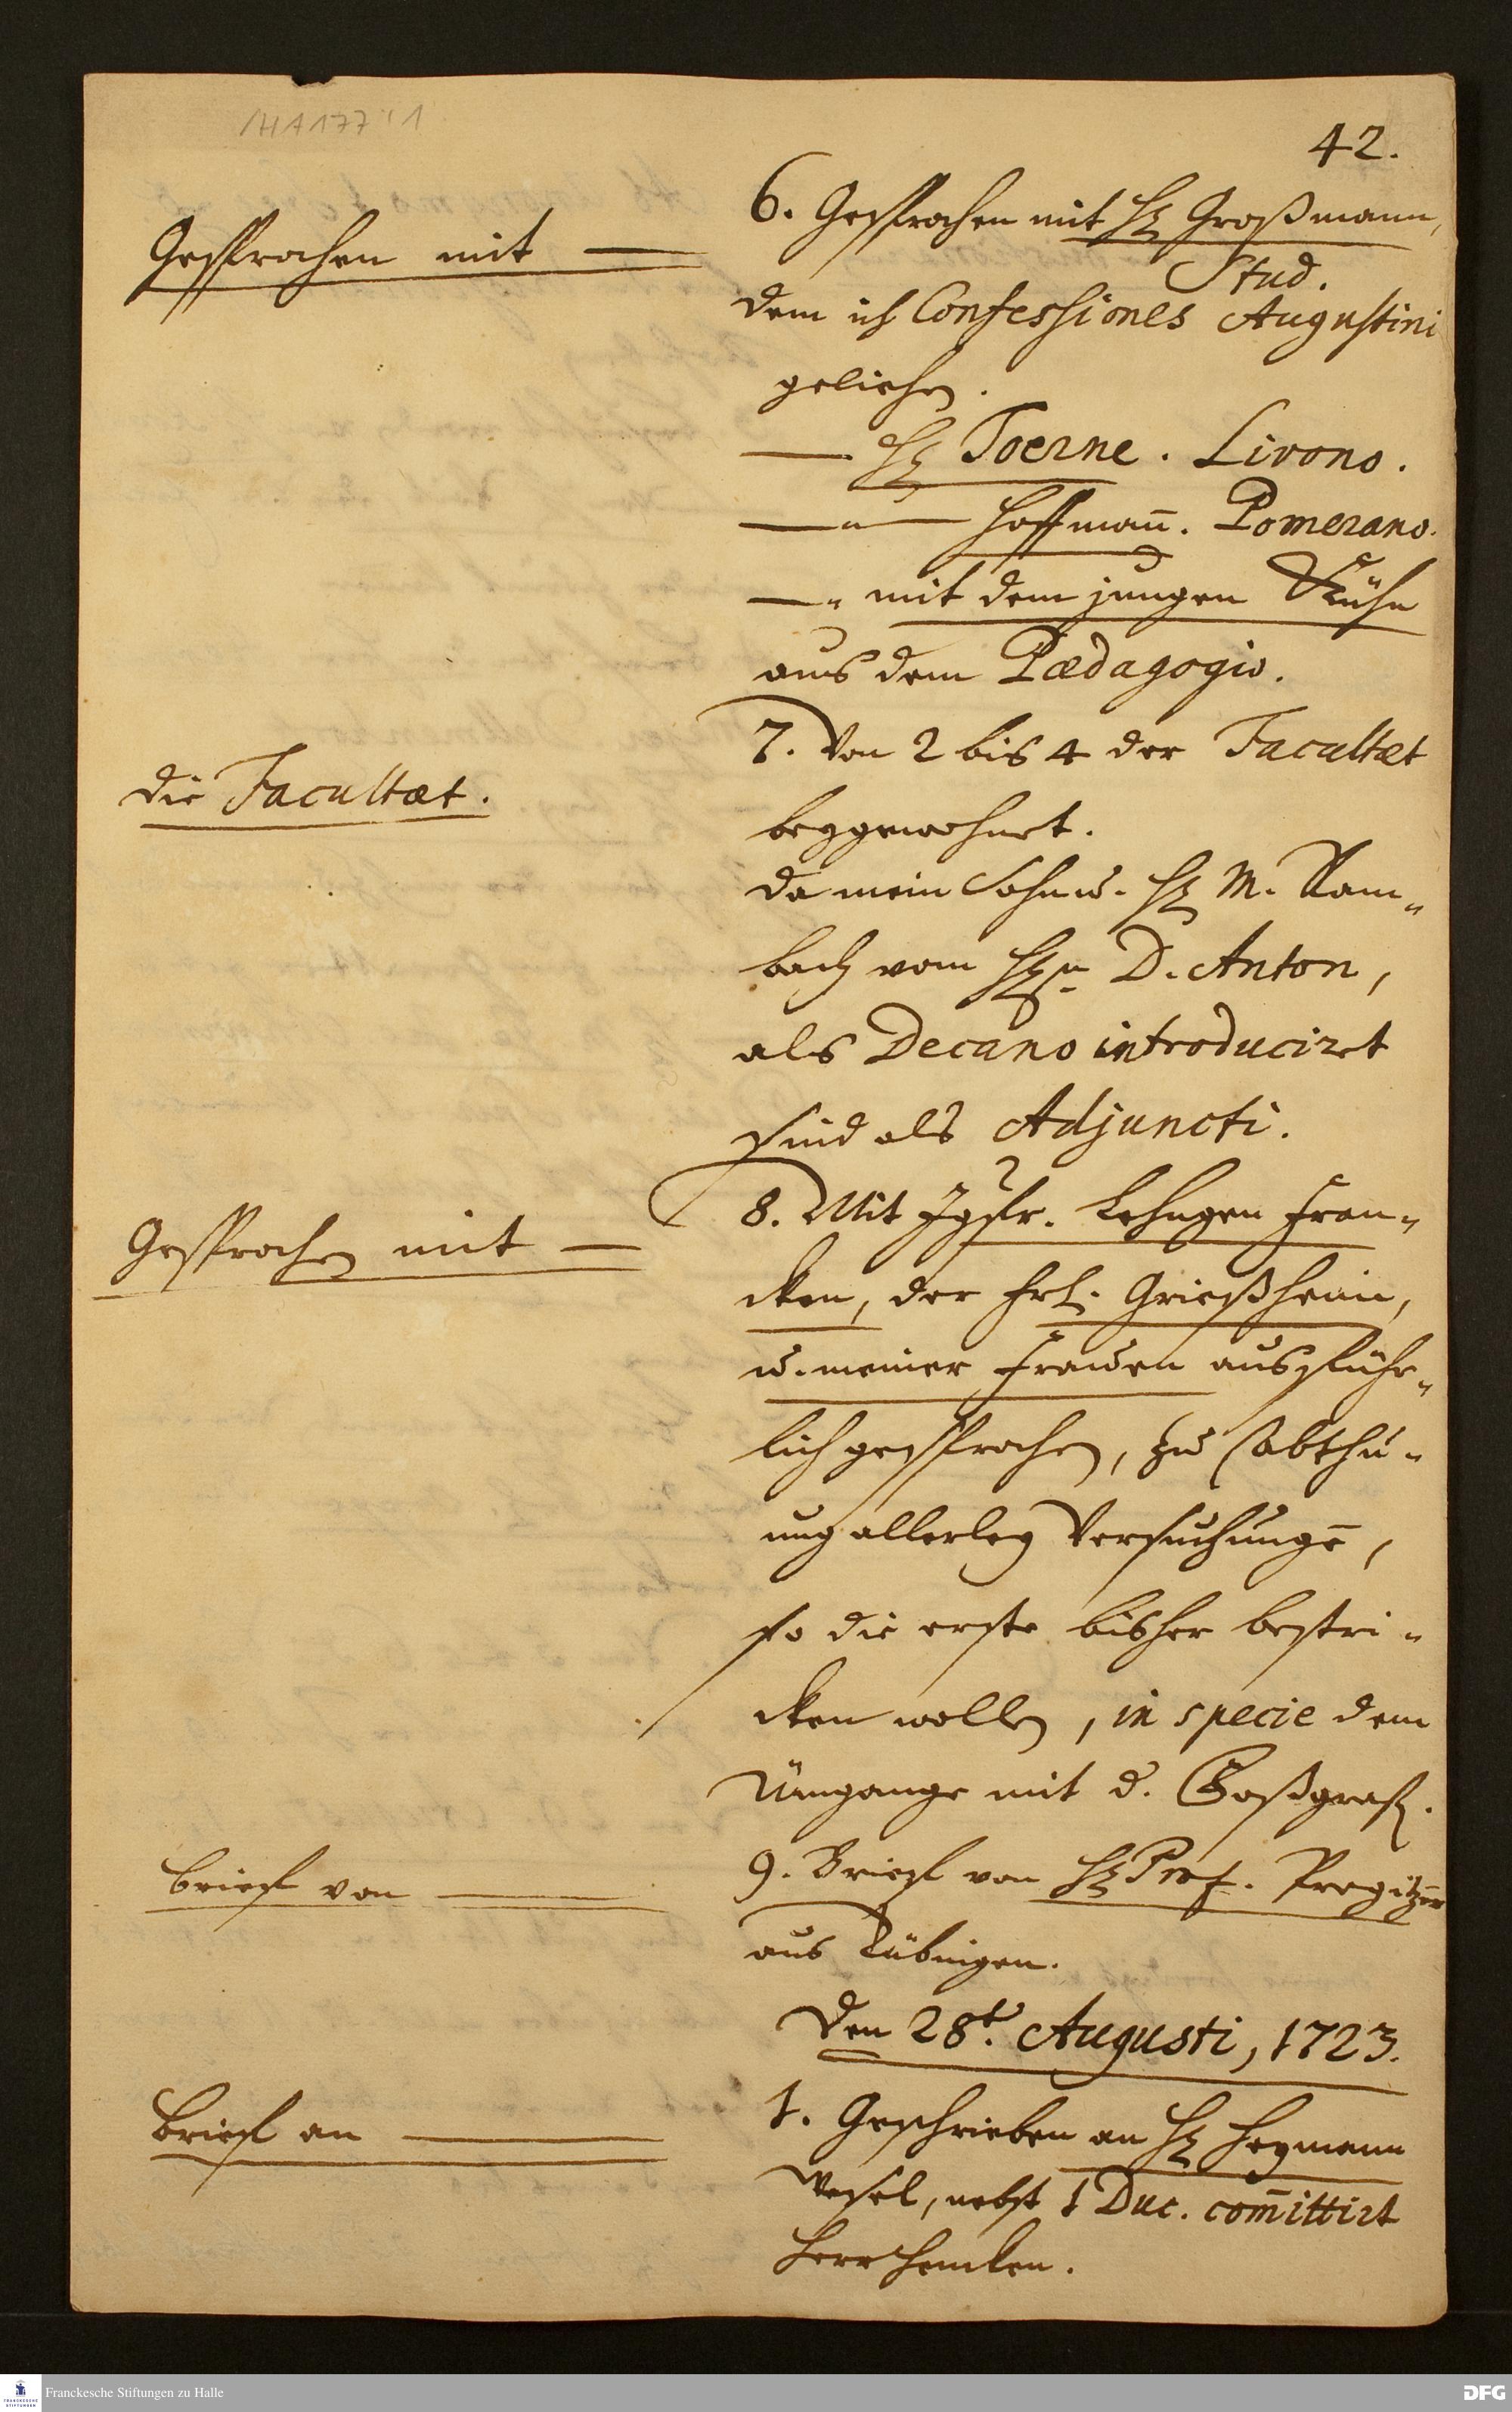 /HA 177:1
42.
Gesprochen mit —
6. Gesprochen mit H. Großmann,
Stud.
dem ich Confessiones Augustini
geliehen.
— H. Toerne. Livono.
— " — Hoffman̄. Pomerano.
— " mit dem jungen Kühn
aus dem Pædagogio.
die Facultæt.
7. Von 2 bis 4 der Facultæt
beygewohnet.
da mein Sohn u. H. M. Ram-
bach vom Hn D. Anton,
als Decano introduciret
sind als Adjuncti.
Gesprochen mit —
8. Mit Jgfr. Lehngen Fran-
cken, der Frl. Grießheim,
u. meiner Frauen ausführ-
lich gesprochen, zu Abthu-
ung allerley Versuchungē,
so die erste bisher bestri-
cken wollen, in specie dem
Umgange mit d. Goßgraf.
Brief von —
9. Brief von H. Prof. Pregitzer
aus Tübingen.
Den 28t. Augusti, 1723.
Brief an —
1. Geschrieben an H. Heymann
Wesel, nebst 1 Duc. com̄ittirt
Herr Hencken.
FRANCKESCHE STIFTUNGEN
Franckesche Stiftungen zu Halle
DFG